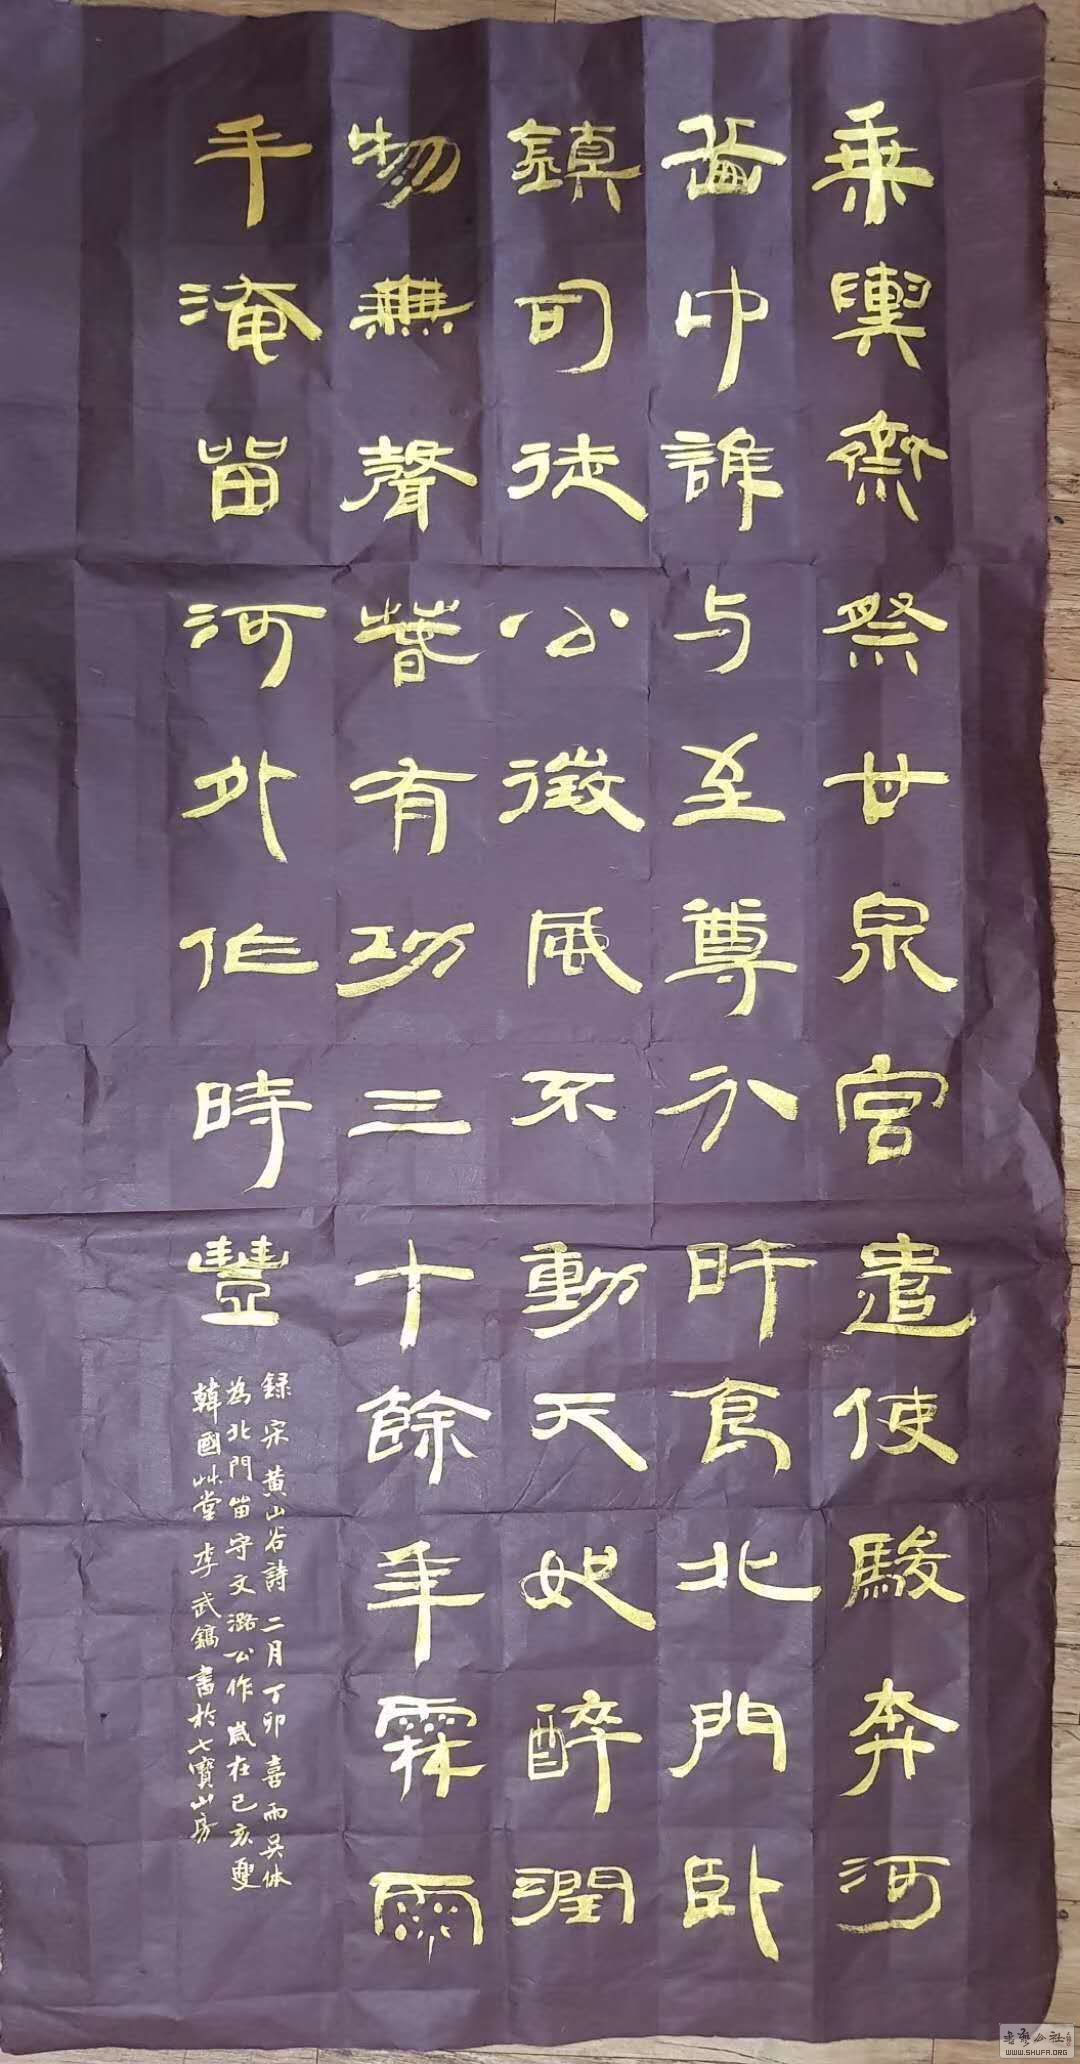 乗輿齋祭甘泉宮遣使駿奔河
岳中誰与至尊分旰食北門臥
鎮司徒公微風不動天如醉潤
物無聲春有功三十餘年霖雨
手淹畱河外作時豐
録宋黄山谷詩二月丁卯喜雨吴体
為北門畱守文潞公作歲在己亥夏
韓國艸堂李武鎬書於七寶山房
书艺公社
WWW.SHUFA.ORG